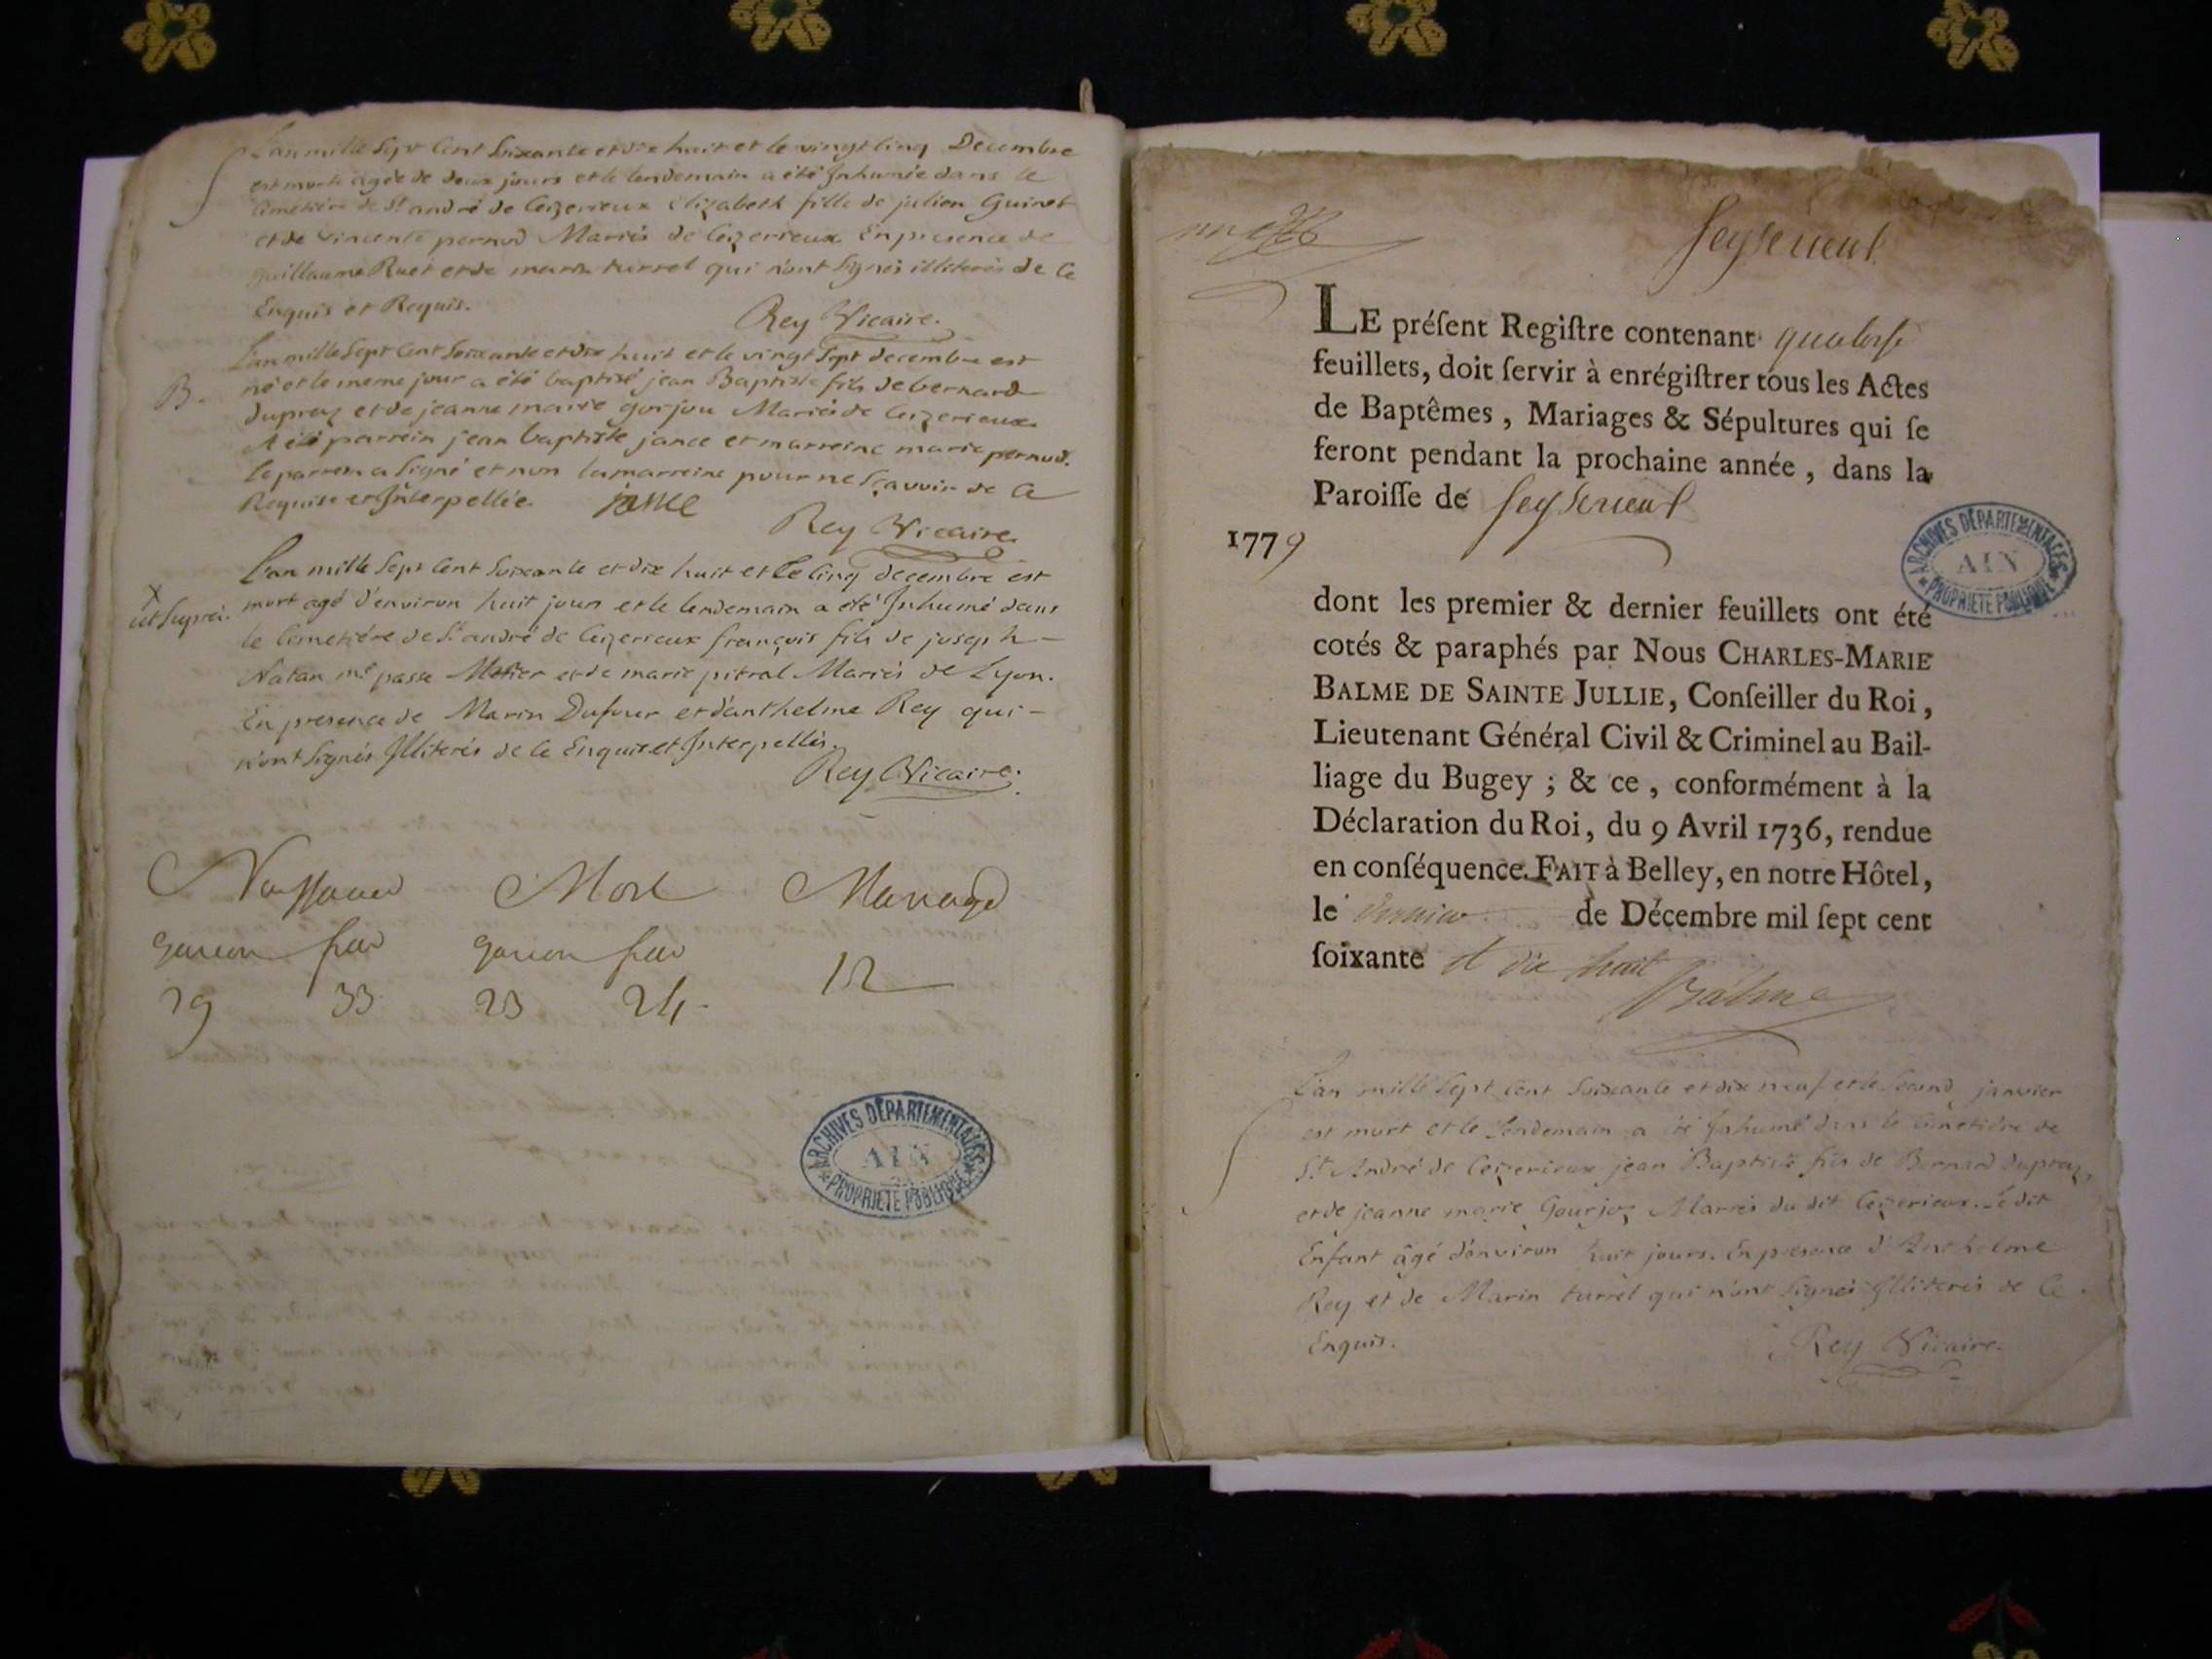 L'an mille Sept Cent Soixante et dix huit et le vingt cinq Decembre
est morte agée de deux jours et le lendemain a été Inhumée dans le
Cimetière de St andré de Ceizerieux Elizabeth fille de julien Guinet
et de vincente pernod Mariés de Ceizerieux En presence de
guillaume Ruet et de marin turrel qui n'ont Signés illiterés de Ce
Enquis et Requis.
Rey Vicaire.
L'an mille Sept Cent Soixante et dix huit et le vingt Sept decembre est
B. né et le meme jour a été baptisé jean Baptiste fils de bernard
dupraz et de jeanne marie gorjou Mariés de Ceizerieux.
A été parrein jean baptiste jance et marreine marie pernod.
le parrein a Signé et non la marreine pour ne Sçavoir de Ce
Requise et Interpellée. jance
Rey Vicaire.
L'an mille Sept Cent Soixante et dix huit et le Cinq decembre est
ut Supra. mort agé d'environ huit jours et le lendemain a été Inhumé dans
le Cimetière de St andré de Ceizerieux françois fils de joseph
Natan me passe Metier et de marie pitral Mariés de Lyon.
En presence de Marin Dufour et d'anthelme Rey qui
n'ont Signés Illiterés de Ce Enquis et Interpellés.
Rey Vicaire.
Naissance Mort Mariage
garcon fille garcon fille
29 33 23 24 12
ARCHIVES DÉPARTEMENTALES
AIN
PROPRIÉTÉ PUBLIQUE
Seyserieul
LE préſent Regiſtre contenant quatorse
feuillets, doit ſervir à enrégiſtrer tous les Actes
de Baptêmes, Mariages & Sépultures qui ſe
feront pendant la prochaine année, dans la
Paroiſſe de Seyserieul
1779
ARCHIVES DÉPARTEMENTALES
AIN
PROPRIÉTÉ PUBLIQUE
dont les premier & dernier feuillets ont été
cotés & paraphés par Nous CHARLES-MARIE
BALME DE SAINTE JULLIE, Conſeiller du Roi,
Lieutenant Général Civil & Criminel au Bail-
liage du Bugey ; & ce, conformément à la
Déclaration du Roi, du 9 Avril 1736, rendue
en conſéquence. FAIT à Belley, en notre Hôtel,
le dernier de Décembre mil ſept cent
ſoixante et dix huit
Balme
L'an mille Sept Cent Soixante et dix neuf et le Second janvier
est mort et le lendemain a été Inhumé dans le Cimetière de
St. André de Ceizerieux jean Baptiste fils de Bernard dupraz,
et de jeanne marie Gourjoz Mariés du dit Ceizerieux. Le dit
Enfant âgé d'environ huit jours. En presence d'Anthelme
Rey et de Marin turrel qui n'ont Signés Illiterés de Ce
Enquis.
Rey Vicaire.